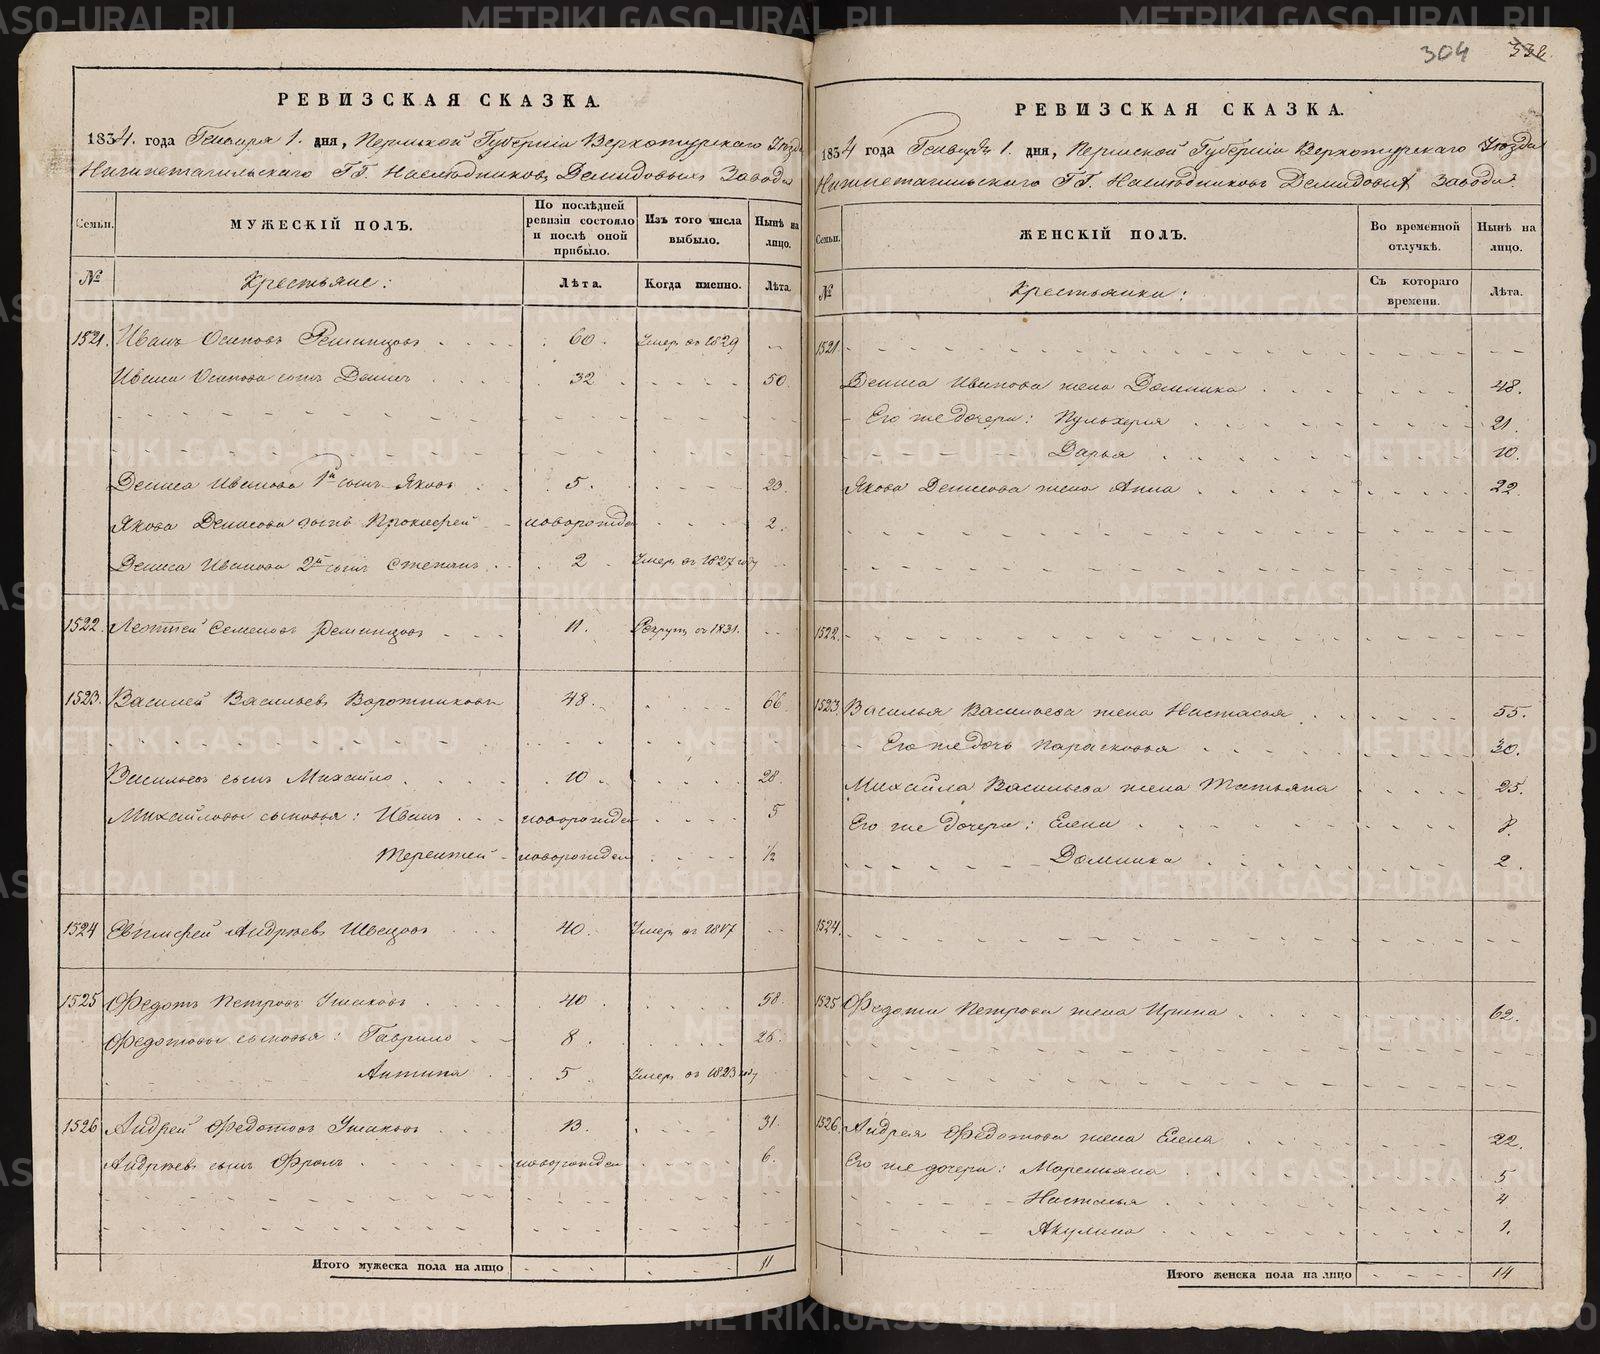 304 332
РЕВИЗСКАЯ СКАЗКА.
1834. года Генваря 1. дня, Пермской Губерніи Верхотурскаго Уѣзда
Нижнетагильскаго ГГ. Наслѣдниковъ Демидовыхъ Завода
Семьи.
МУЖЕСКІЙ ПОЛЪ.
По послѣдней ревизіи состояло и послѣ оной прибыло.
Изъ того числа выбыло.
Нынѣ на лицо.
№ Крестьяне: Лѣта. Когда именно. Лѣта.
1521. Иванъ Осиповъ Ремянцовъ 60. Умеръ въ 1829
Ивана Осипова сынъ Денисъ 32 50.
Дениса Иванова 1й сынъ Яковъ 5. 23.
Якова Денисова сынъ Прокофей новорожден 2.
Дениса Иванова 2й сынъ Степанъ 2 Умеръ въ 1827 году
1522. Семеновъ Ремянцовъ 11. Рекрутъ въ 1831.
1523. Василей Васильевъ Воротниковъ 48. 66.
Васильевъ сынъ Михайло 10 28.
Михайловы сыновья: Иванъ новорожден 5
Терентей новорожден 1/2
1524 Евтифей Андрѣевъ Швецовъ 40. Умеръ въ 1817
1525 Федотъ Петровъ Ушаковъ 40 58.
Федотовы сыновья: Гаврило 8. 26.
Антипа 5 Умеръ въ 1823 году
1526 Андрей Федотовъ Ушаковъ 13. 31.
Андрѣевъ сынъ Фролъ новорожден 6.
Итого мужеска пола на лицо 11
РЕВИЗСКАЯ СКАЗКА.
1834 года Генваря 1. дня, Пермской Губерніи Верхотурскаго Уѣзда
Нижнетагильскаго ГГ. Наслѣдниковъ Демидовыхъ Завода.
Семьи.
ЖЕНСКІЙ ПОЛЪ.
Во временной отлучкѣ.
Нынѣ на лицо.
№ Крестьянки: Съ котораго времени. Лѣта.
1521.
Дениса Иванова жена Домника 48.
Его же дочери: Пульхерія 21.
Дарья 10.
Якова Денисова жена Анна 22.
1522.
1523. Василья Васильева жена Настасья 55.
Его же дочь Парасковья 30.
Михайла Васильева жена Татьяна 25.
Его же дочери: Елена 8.
Домника 2.
1524.
1525 Федота Петрова жена Ирина 62.
1526. Андрея Федотова жена Елена 22.
Его же дочери: Маремьяна 5
Наталья 4
Акулина 1.
Итого женска пола на лицо 14
METRIKI.GASO-URAL.RU